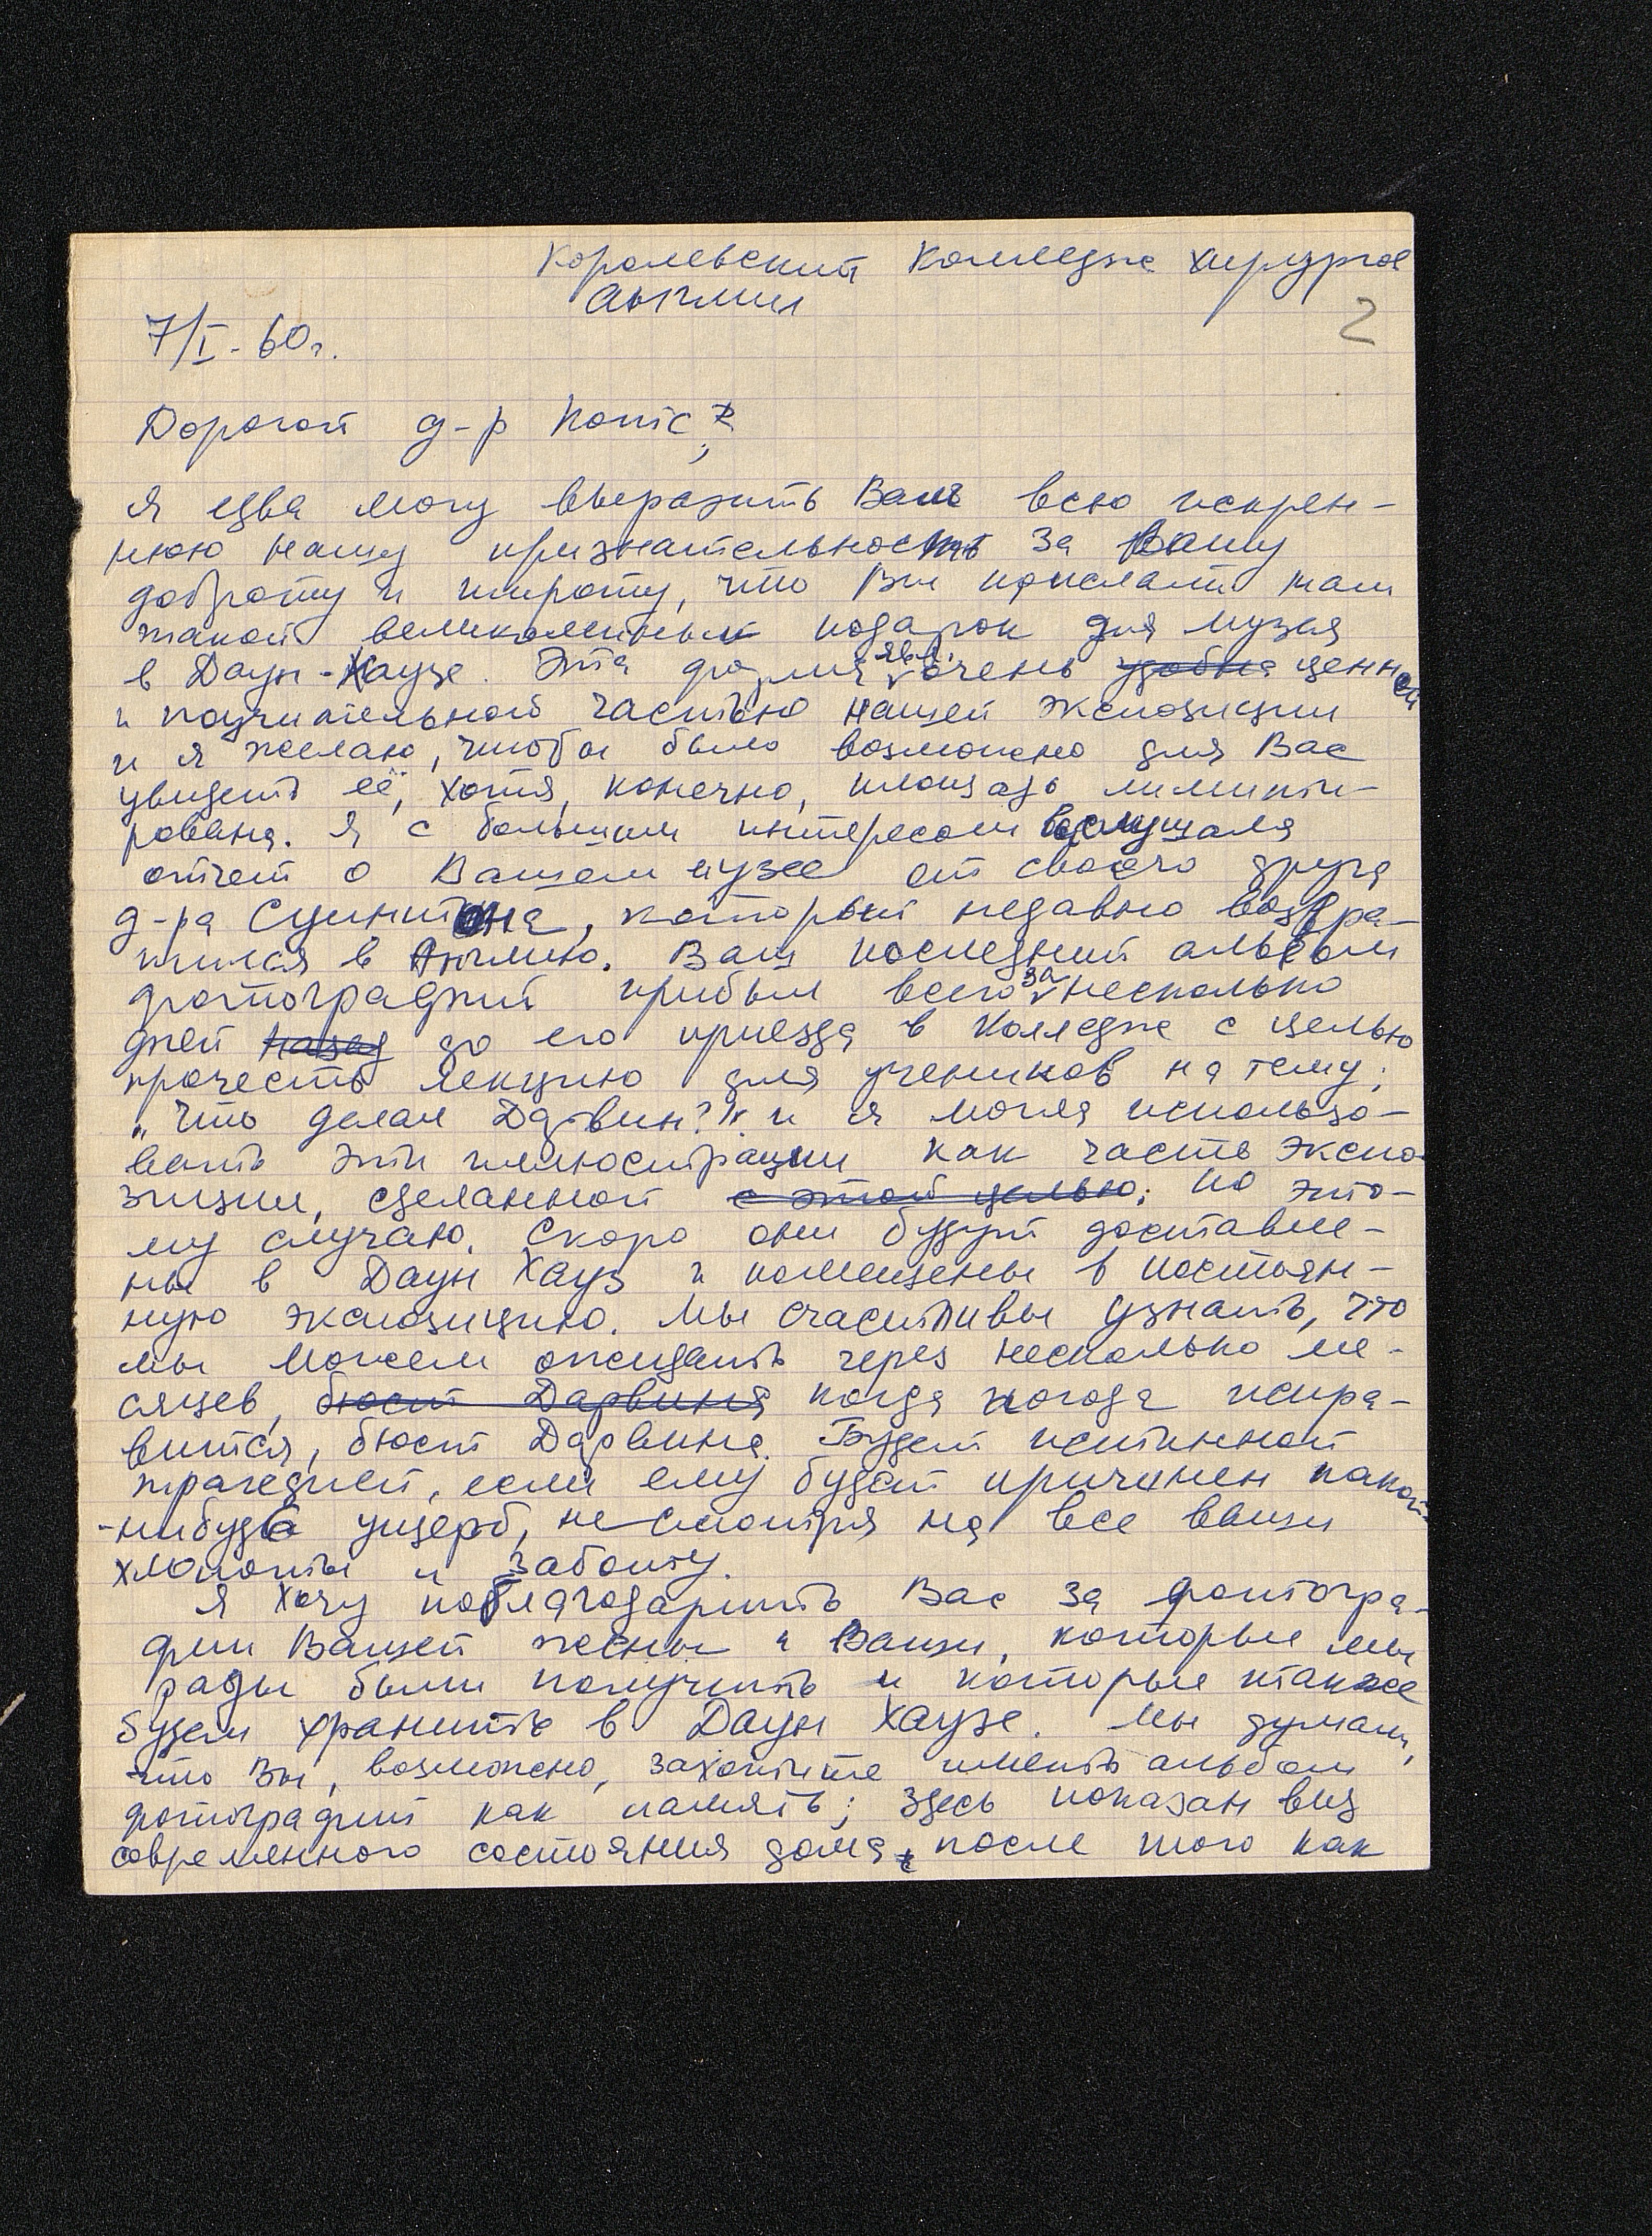 Королевский Колледж хирургов
Англии
2
7/I - 60 г.
Дорогой д-р Котс,
Я едва могу выразить Вам всю искрен-
нюю нашу признательность за Вашу
доброту и широту, что Вы прислали нам
такой великолепный подарок для музея
в Даун-Хаузе. Эта форма явл. очень удобна ценной
и поучительной частью нашей экспозиции
и я желаю, чтобы было возможно для Вас
увидеть её, хотя, конечно, площадь лимити-
рована. Я с большим интересом
отчет о Вашем музее от своего друга
д-ра Суинтона, который недавно возвра-
тился в Англию. Ваш последний альбом
фотографий прибыл всего за несколько
дней назад до его приезда в Колледж с целью
прочесть лекцию для учеников на тему:
„Что делал Дарвин?" и я могла использо-
вать эти иллюстрации как часть экспо-
зиции, сделанной с этой целью; по это-
му случаю. Скоро они будут доставле-
ны в Даун Хауз и помещены в постоян-
ную экспозицию. Мы счастливы узнать, что
мы можем ожидать через несколько ме-
сяцев, бюст Дарвина когда погода испра-
вится, бюст Дарвина. Будет истинной
трагедией, если ему будет причинен какой-
-нибудь ущерб, несмотря на все ваши
хлопоты и заботу.
Я хочу поблагодарить Вас за фотогра-
фии Вашей жены и Ваши, которые мы
рады были получить и которые также
будем хранить в Даун Хаузе. Мы думаем,
что Вы, возможно, захотите иметь альбом
фотографий как память; здесь показан вид
современного состояния дома, после того как